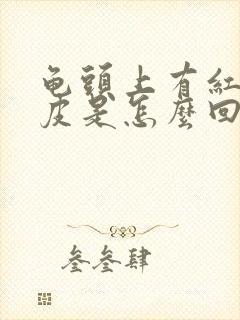 龟頭上有紅
皮是怎麼回
叁叁肆